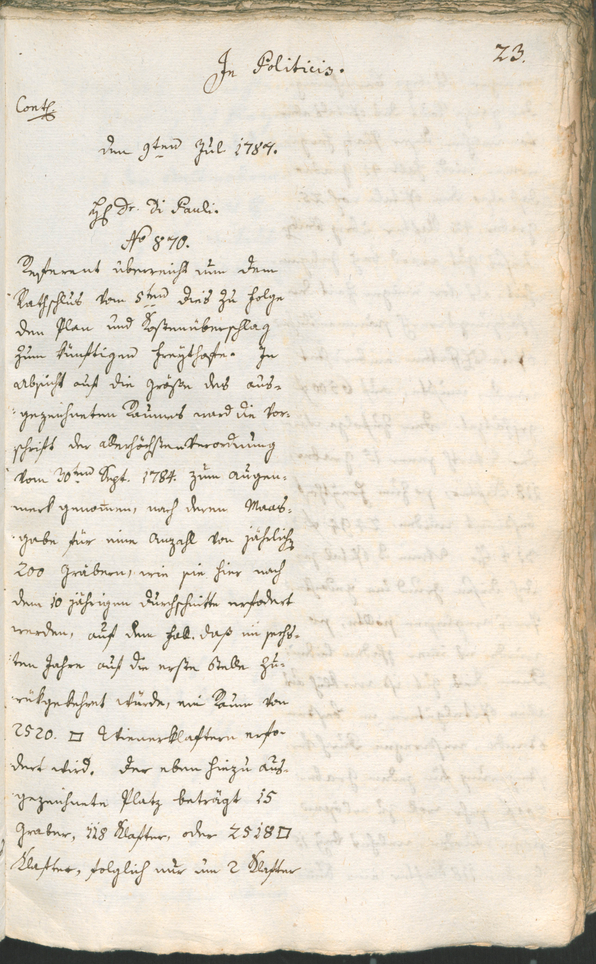 In Politicis.
23.
Cont.
den 9ten Jul 1787.
H Dr. Di Pauli.
No 870.
Referent überreicht nun dem
Rathschlus vom 5ten dies zu folge
den Plan und Kostenüberschlag
zum künftigen Freythofe. In
Absicht auf die Größe des aus-
gezeichneten Raumes ward die Vor-
schrift der allerhöchsten Verordnung
vom 30ten Sept. 1784. zum Augen-
merk genommen, nach deren Maas-
gabe für eine Anzahl von jährlich
200 Gräbern, wie sie hier nach
dem 10 jährigen Durchschnitte erfodert
werden, auf den Fall, daß im sechs-
ten Jahre auf die erste Stelle zu-
rükgekehrt würde, ein Raum von
2520. □ Wienerklaftern erfo-
dert wird. Der eben hiezu aus-
gezeichnete Platz beträgt 15
Graber, 118 Klafter, oder 2518 □
Klafter, folglich nur um 2 Klafter